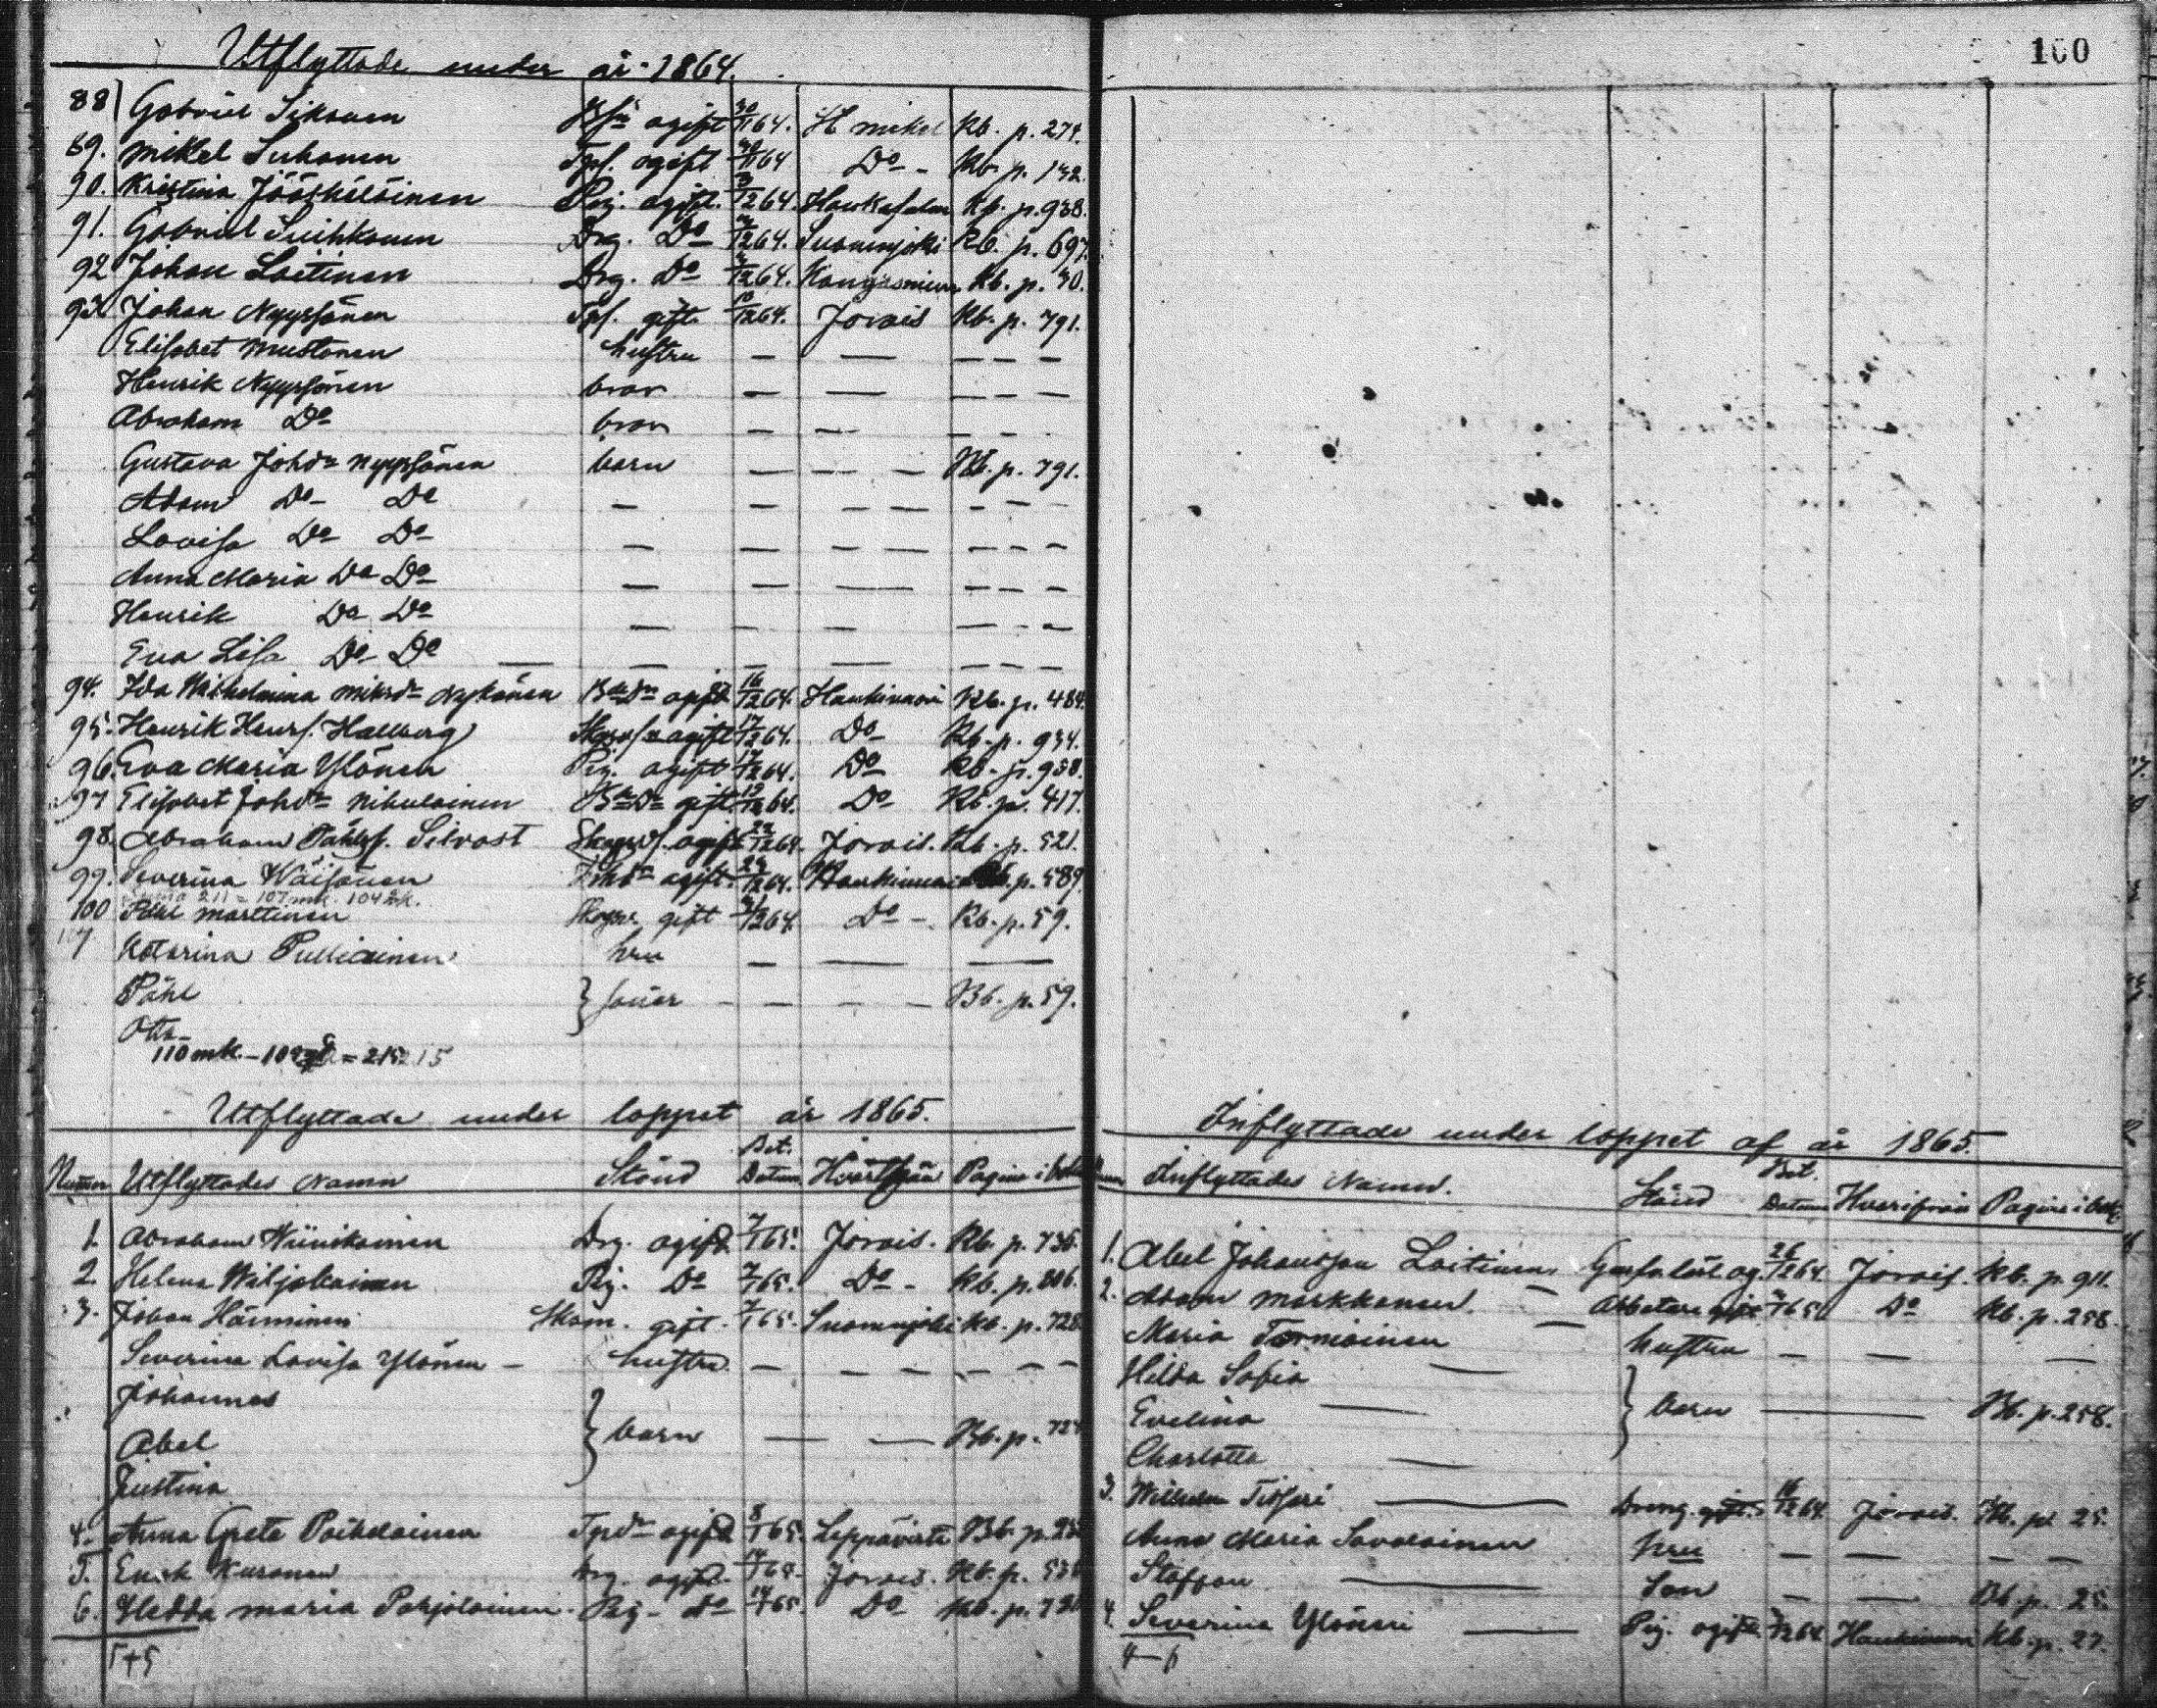 Utflyttade under år 1864.
88 Gabriel Siksonen Bsn ogift 30/11 64. St mikel Kb. p. 274.
89. Mikel Suhonen Tgf. ogift 30/11 64 Do - Kb. p. 132.
90. Kristina Jääskeläinen Pig. ogift. 3/12 64. Haukasalmi Kb. p. 938.
91. Gabriel Suihkonen Drg. Do 3/12 64. Suonenjoki Kb. p. 697.
92 Johan Laitinen Drg. Do 3/12 64. Kangasniemi Kb. p. 30.
93. Johan Nyyssönen Tgf. gift. 10/12 64. Jorois Kb. p. 791.
Elisabet Mustonen hustru — — — — —
Henrik Nyyssönen bror — — — — —
Abraham Do bror — — — —
Gustava Johdr Nyyssönen barn — — — — Bb. p. 791.
Adam Do Do — — — — — —
Lovisa Do Do — — — — — — —
Anna Maria Do Do — — — — — —
Henrik Do Do — — — — — —
Eva Lisa Do Do — — — — — — —
94. Ida Wilhelmina Miksdr Nykänen Bdr ogift 16/12 64. Haukivuori Kb. p. 484.
95. Henrik Henrs. Hallberg ogift 17/12 64. Do Kb. p. 934.
96. Eva Maria Ylönen Pig. ogift 17/12 64. Do Kb. p. 958.
97 Elisabet Johdr Nikulainen Bdr gift. 19/12 64. Do Kb. p. 417.
98. Abraham Påhlsf. Silvast ogift 22/12 64. Jorois. Kb. p. 521.
99. Severina Wäisänen ogift. 24/12 64. Haukivuori Kb. p. 589
211 = 107 mk. 104 qk.
100 Påhl Marttinen gift 31/12 64. Do -. Kb. p. 59.
Katarina Pulliainen hru — — —
Påhl } söner — — — — Bb. p. 59.
Otto
110 mk. - 105 = 215 15
Utflyttade under loppet år 1865.
Inflyttade under loppet af år 1865.
Bet.
Numer Utflyttades Namn Stånd Datum Pagina i bok
Bet.
Inflyttades Namn. Stånd Datum Hvarifrån Pagina i bok.
1. Abraham Wiinikainen Drg. ogift 7/1 65. Jorois. Kb. p. 736.
2. Helena Wiljakainen Pig. Do 7/1 65. Do - Kb. p. 806.
3. Johan Hänninen gift. 7/1 65. Suonenjoki Kb. p. 728
Severina Lovisa Ylönen - hustru — — — — — —
Johannes
Abel } barn — — Bb. p. 728
Justina
4. Anna Greta Poikolainen Tpdr ogift 8/1 65. Leppävirta Bb. p.
5. Erick Kuronen Drg. ogift. 14/1 65. Jorois. Kb. p.
6. Hedda Maria Pohjolainen. Pig. Do 14/1 65. Do Kb. p.
5+5
1. Abel Johansson Laitinen og. 26/12 64. Jorois. Kb. p. 911.
2. Adam Markkanen. — Arbetare gift /1 65. Do Kb. p. 258.
Maria Tarniainen — hustru — — —
Hilda Sofia —
Evelina — } barn — Bb. p. 258.
Charlotta —
3. Wilhelm Tissari — Dreng. gift. 16/12 64. Jorois. Kb. p. 25.
Anna Maria Savolainen hru — — — —
Staffan — son — — Bb. p. 25.
4. Severina Ylönen — Pig. ogift. /12 64. Haukivuori Kb. p. 27.
4—6
100